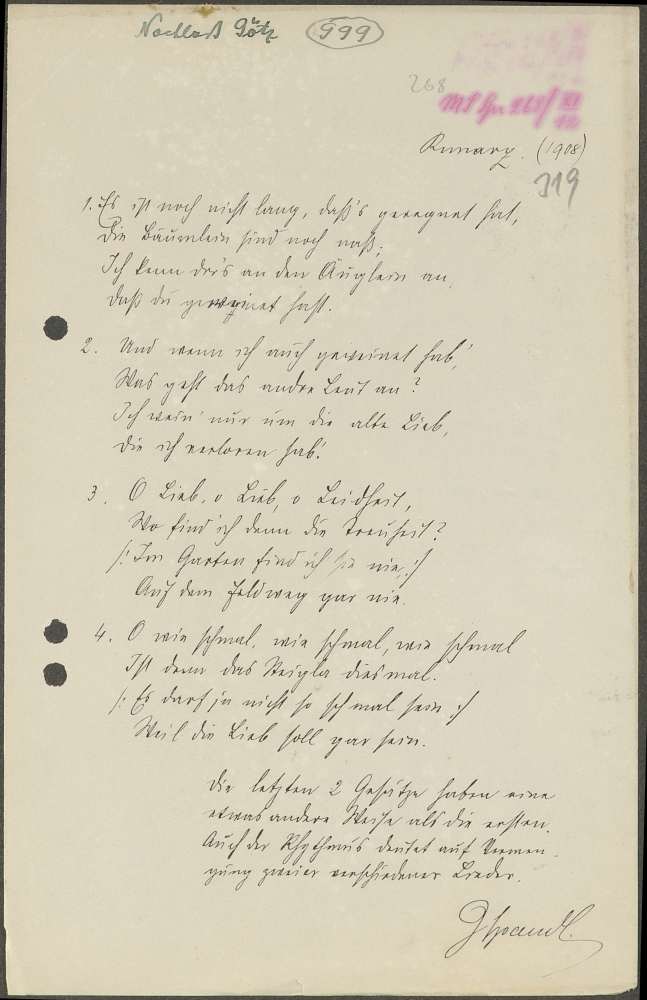 Nachlaß Götz 999
268
Ms Gr 268/ XI
12
Runarz. (1908)
319
1. Es ist noch nicht lang, daß's geregnet hat,
Die Bäumlein sind noch naß;
Ich kenn dir's an den Äuglein an,
Daß du geweinet hast.
2. Und wenn ich auch geweinet hab',
Was geht das andre Leut an?
Ich wein' nur um die alte Lieb,
Die ich verloren hab'.
3. O Lieb, o Lieb, o Leidheit,
Wo find ich denn die Treuheit?
/: Im Garten find ich sie nie, :/
Auf dem Feldweg gar nie.
4. O wie schmal, wie schmal, wie schmal
Ist denn das Steigla diesmal.
/: Es darf ja nicht so schmal sein :/
Weil die Lieb soll gar sein.
Die letzten 2 Gesätze haben eine
etwas andere Weise als die ersten.
Auch der Rhythmus deutet auf Vermen-
gung zweier verschiedener Lieder.